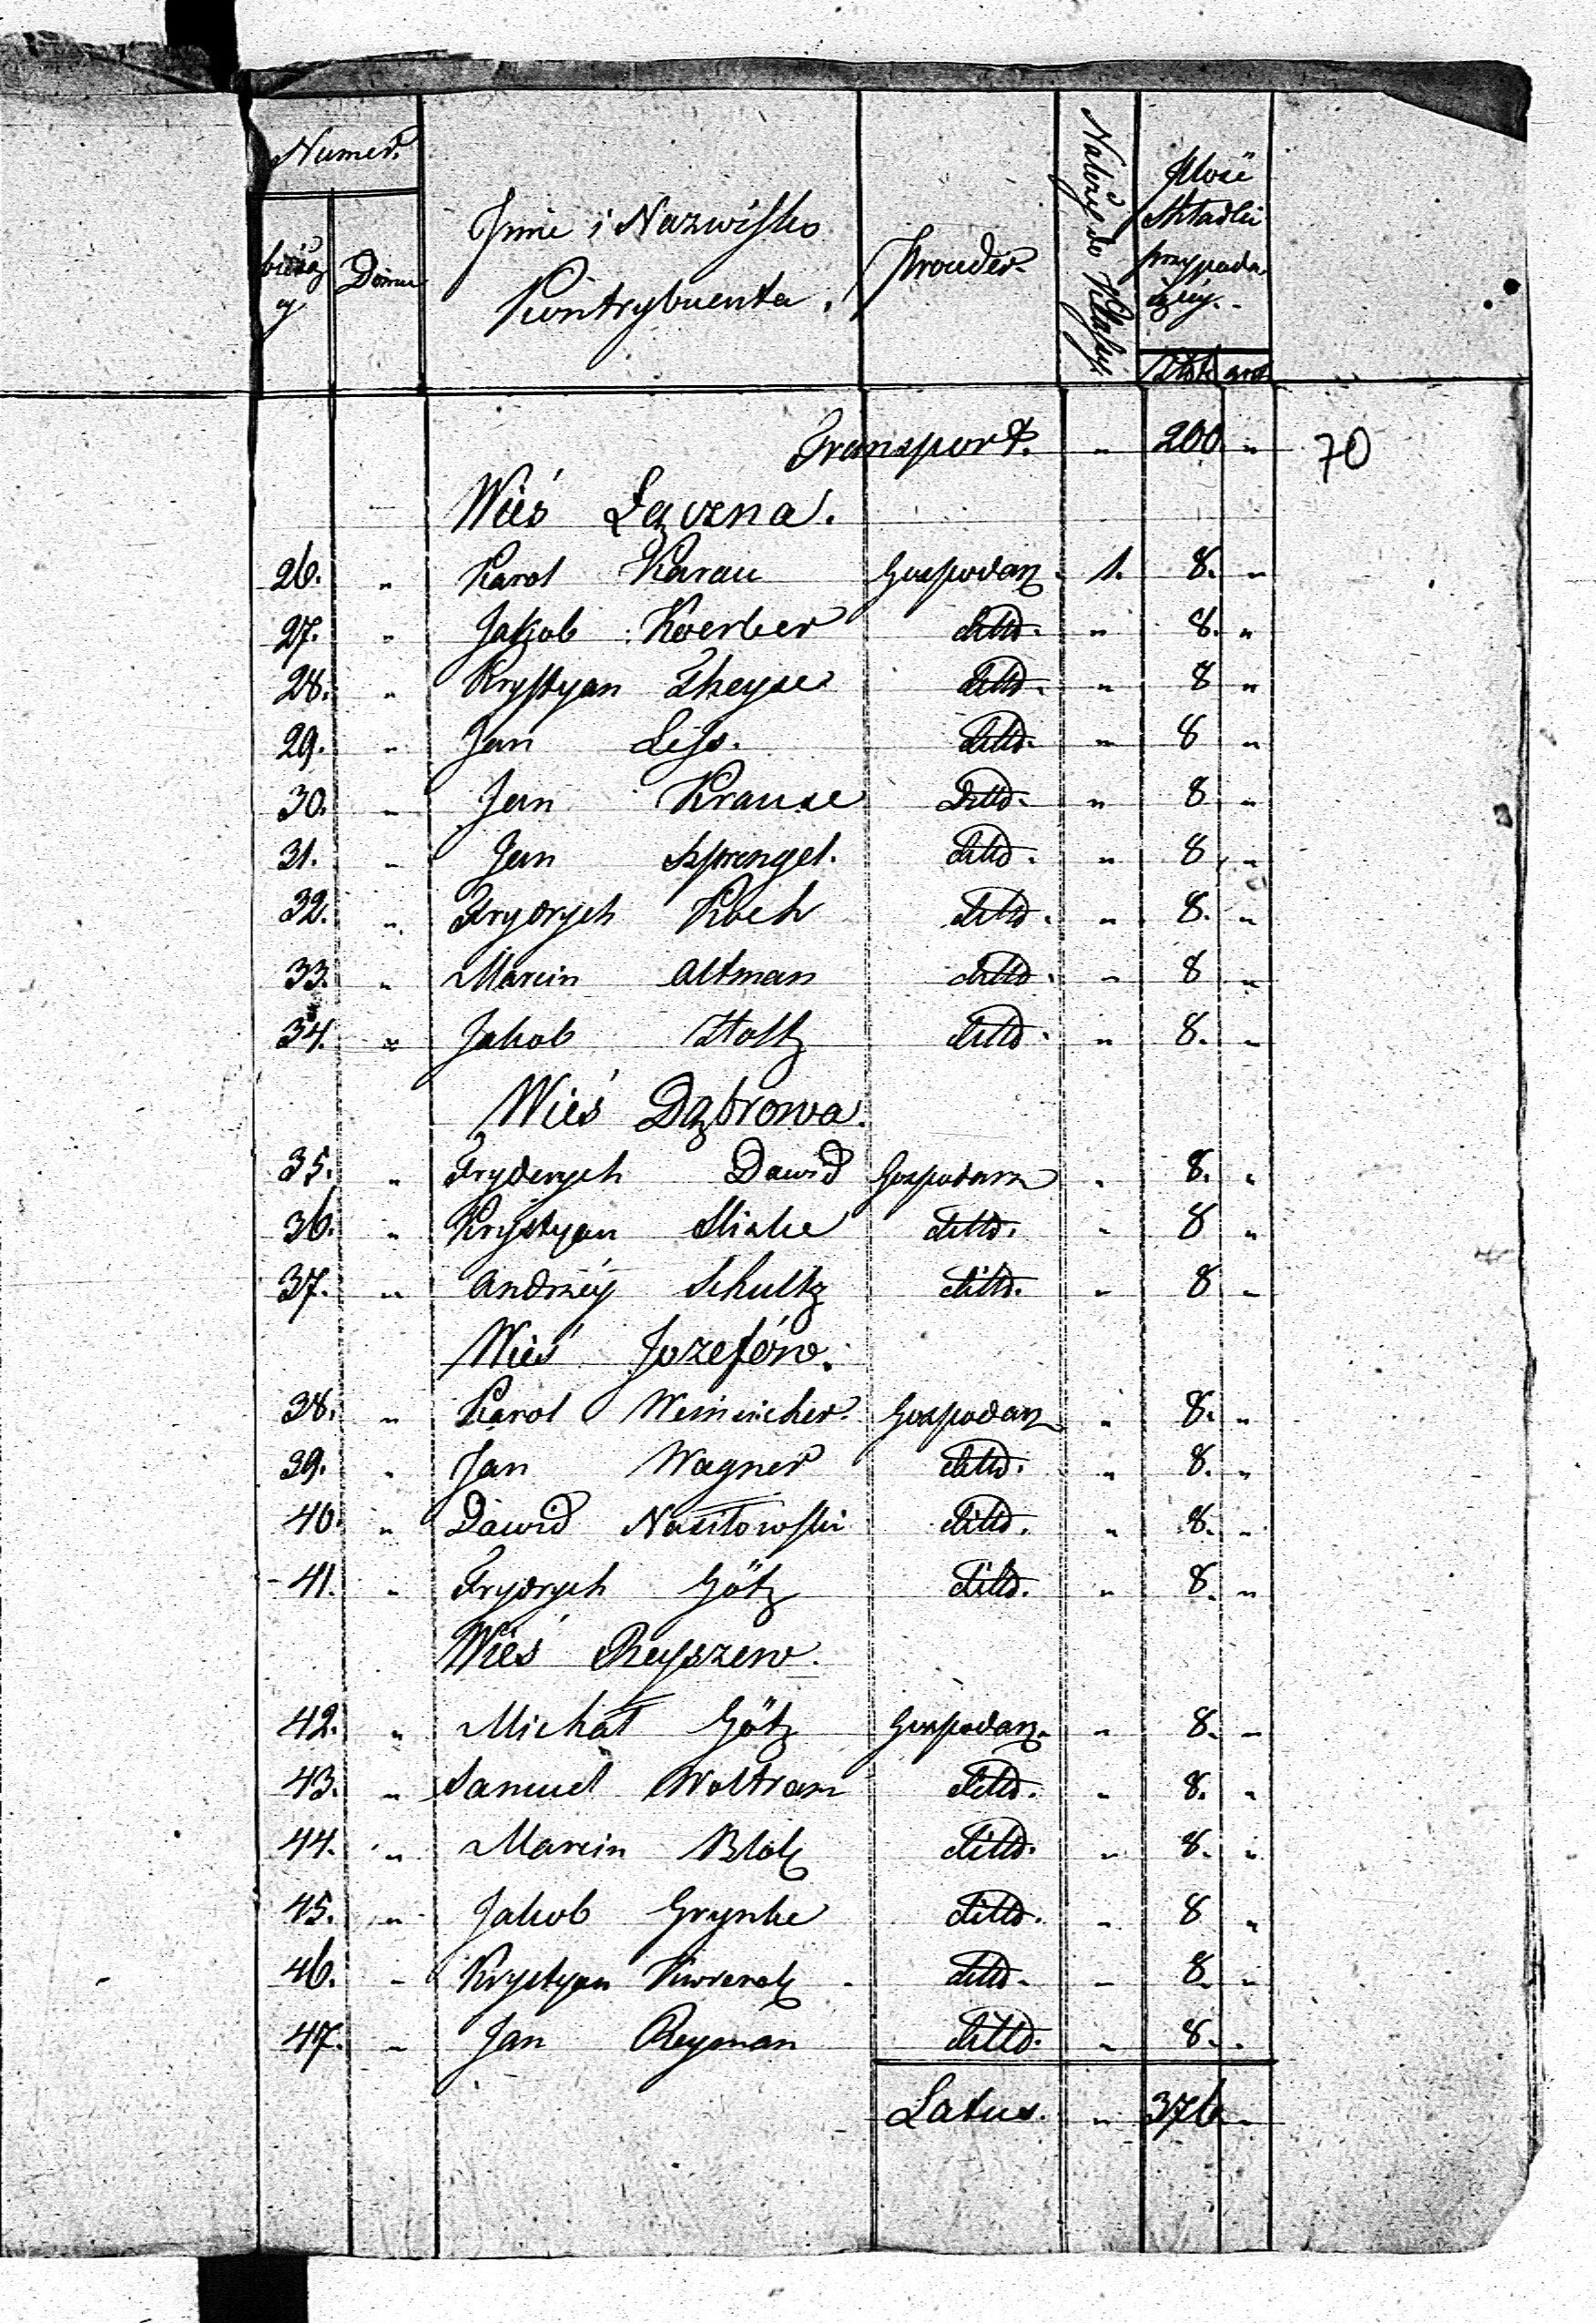 Numer.
bieżący
Domu
Imie i Nazwisko
Kontrybuenta.
Proceder
Należy do Klassy.
Ilość
Składki
przypada
iącey.
Złot. gro.
Transport. " 200. "
70
Wieś Łązna.
26. " Karol Karau Gospodarz. 1. 8. "
27. " Jakob Koerber ditto. " 8. "
28. " Krystyan Theyse ditto. " 8 "
29. " Jan Liss. ditto. " 8 "
30. " Jan Krause ditto. " 8 "
31. " Jan Szprengel. ditto. " 8 "
32. " Frydrych Koch ditto. " 8. "
33. " Marcin Altman ditto. " 8 "
34. " Jakob Stoltz ditto. " 8. "
Wieś Dąbrowa.
35. " Fryderych Dawid Gospodarz " 8. "
36. " Krystyan ditto. " 8 "
37. " Andrzéy Schultz ditto. " 8 "
Wieś Jozefów.
38. " Karol Gospodarz " 8. "
39. " Jan Wagner ditto. " 8. "
40. " Dawid Nasiłowski ditto. " 8. "
41. " Frydrych Götz ditto. " 8. "
Wieś Reyszew.
42. " Michał Götz Gospodarz. " 8. "
43. " Samuel Woltram ditto. " 8. "
44. " Marcin Blok ditto. " 8. "
45. " Jakob Grynke ditto. " 8 "
46. " Krystyan ditto. " 8. "
47. " Jan Reyman ditto. " 8. "
Latus. " 376 "